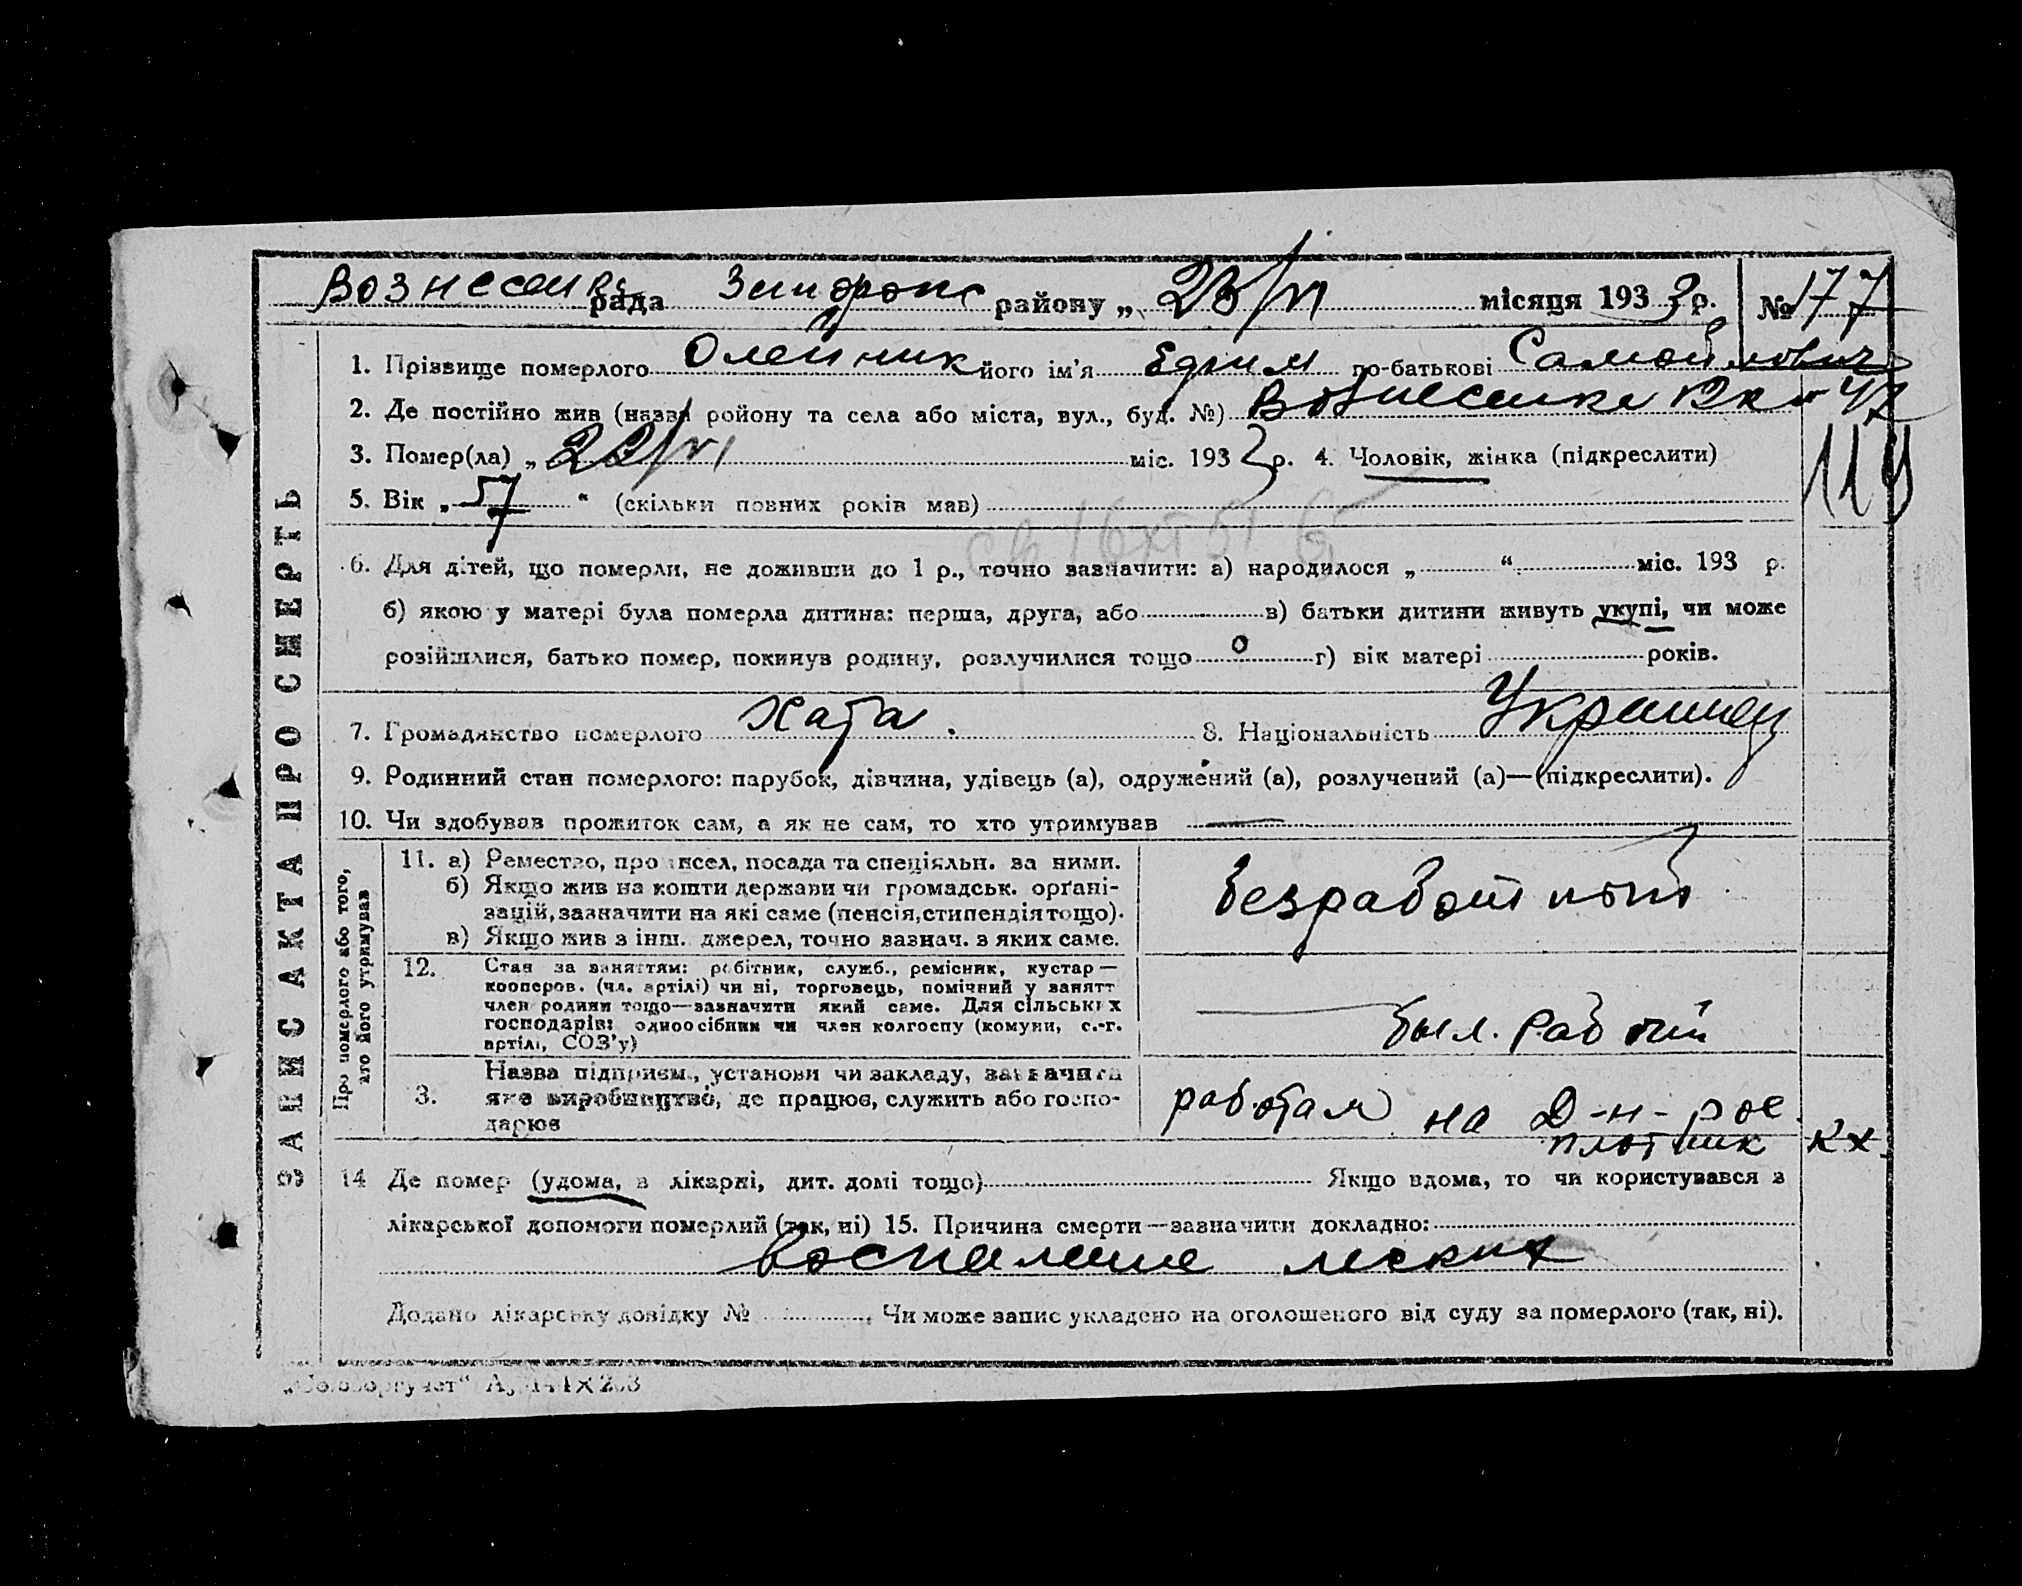 Вознесенка рада Запорож району „ 23/VI місяця 1933 р. № 177
1. Прізвище померлого Олейник його ім'я Ефим по-батькові Самойлович
2. Де постійно жив (назва ройону та села або міста, вул., буд. №) Вознесенка
3. Помер(ла) „ 22/VI міс. 1933 р. 4. Чоловік, жінка (підкреслити)
5. Вік „ 57 “ (скільки повних років мав)
6. Для дітей, що померли, не доживши до 1 р., точно зазначити: а) народилося „ “ міс. 193 р.
б) якою у матері була померла дитина: перша, друга, або в) батьки дитини живуть укупі, чи може
розійшлися, батько помер, покинув родину, розлучилися тощо г) вік матері років.
7. Громадянство померлого хата. 8. Національність Украинец
9. Родинний стан померлого: парубок, дівчина, удівець (а), одружений (а), розлучений (а)—(підкреслити).
10. Чи здобував прожиток сам, а як не сам, то хто утримував
ЗАПИСКА ПРО СМЕРТЬ
Про померлого або того, хто його утримував
11. а) Ремество, промисел, посада та спеціяльн. за ними.
б) Якщо жив на кошти держави чи громадськ. орґані-
зацій, зазначити на які саме (пенсія, стипендія тощо).
в) Якщо жив з інш. джерел, точно зазнач. з яких саме.
безработный
12. Стан за заняттям: робітник, служб., ремісник, кустар —
кооперов. (чл. артілі) чи ні, торговець, помічний у занятт
член родини тощо—зазначити який саме. Для сільських
господарів: одноосібник чи член колгоспу (комуни, с.-г.
артілі, СОЗ'у)
был. рабочий
3. Назва підприєм., установи чи закладу, зазначити
яке виробництво, де працює, служить або госпо-
дарює
работал на Д-н-рое
плотник кх.
14 Де помер (удома, в лікарні, дит. домі тощо) Якщо вдома, то чи користувався з
лікарської допомоги померлий (так, ні) 15. Причина смерти—зазначити докладно:
воспаление легких
Додано лікарську довідку № Чи може запис укладено на оголошеного від суду за померлого (так, ні).